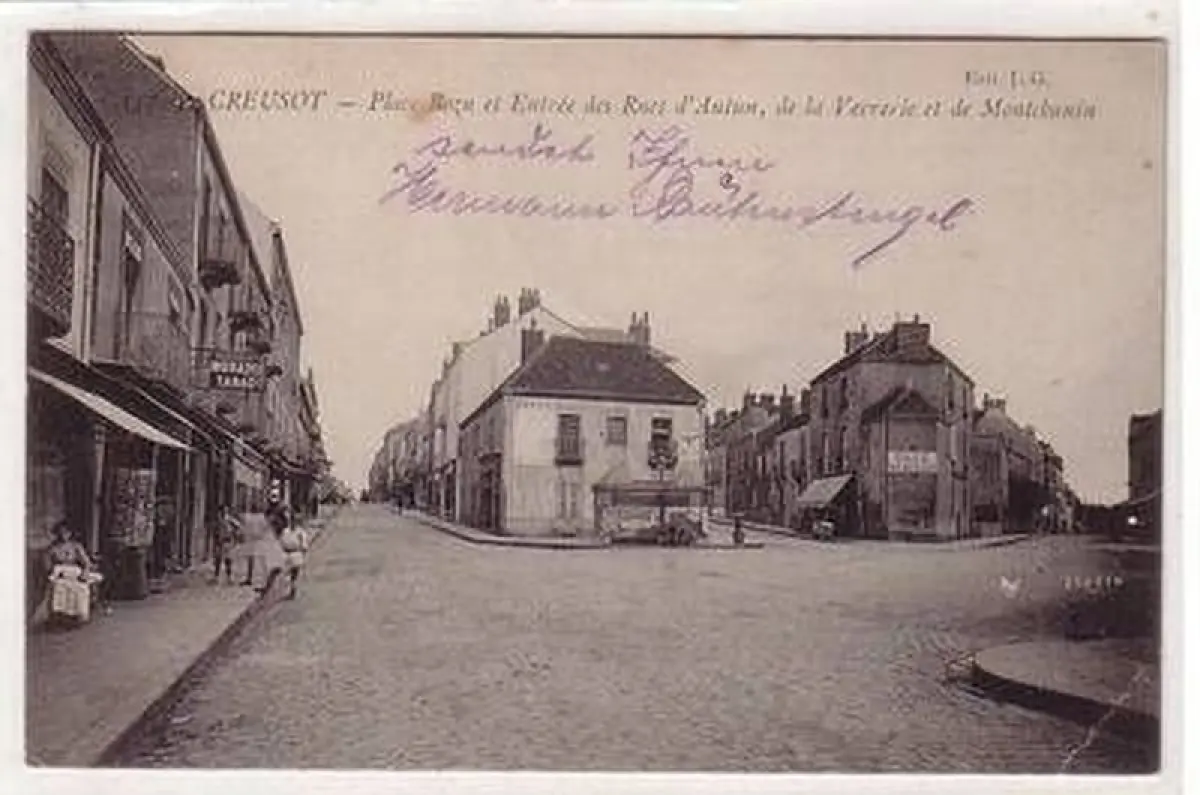 Edit. J. G.
LE CREUSOT — Place Bozu et Entrée des Rues d'Autun, de la Verrerie et de Montchanin
sendet Ihnen
Hermann
TABAC